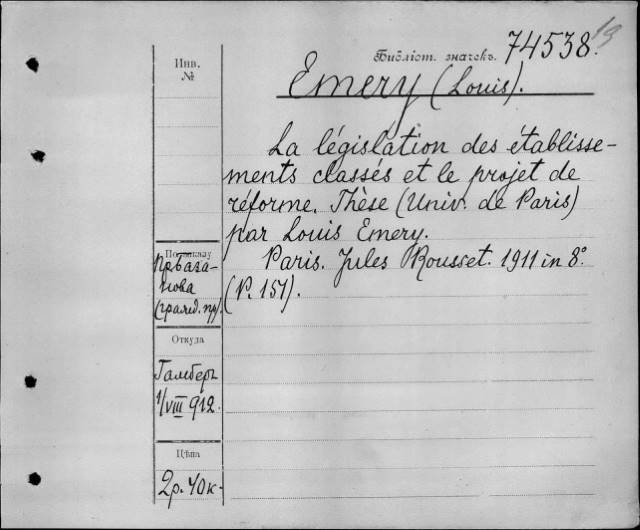 Инв.
№
Библіот. значекъ. 74538.
13
Emery (Louis).
La législation des établisse-
ments classés et le projet de
réforme. Thèse (Univ. de Paris)
par Louis Emery.
Paris. Jules Rousset. 1911 in 8°
(P. 151).
По заказу
нова
Откуда
Гамберъ
1/VIII 912.
Цѣна
2р. 40к.